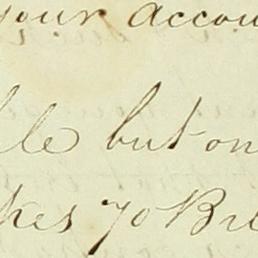 your accou
le but on
kes 70 Bu